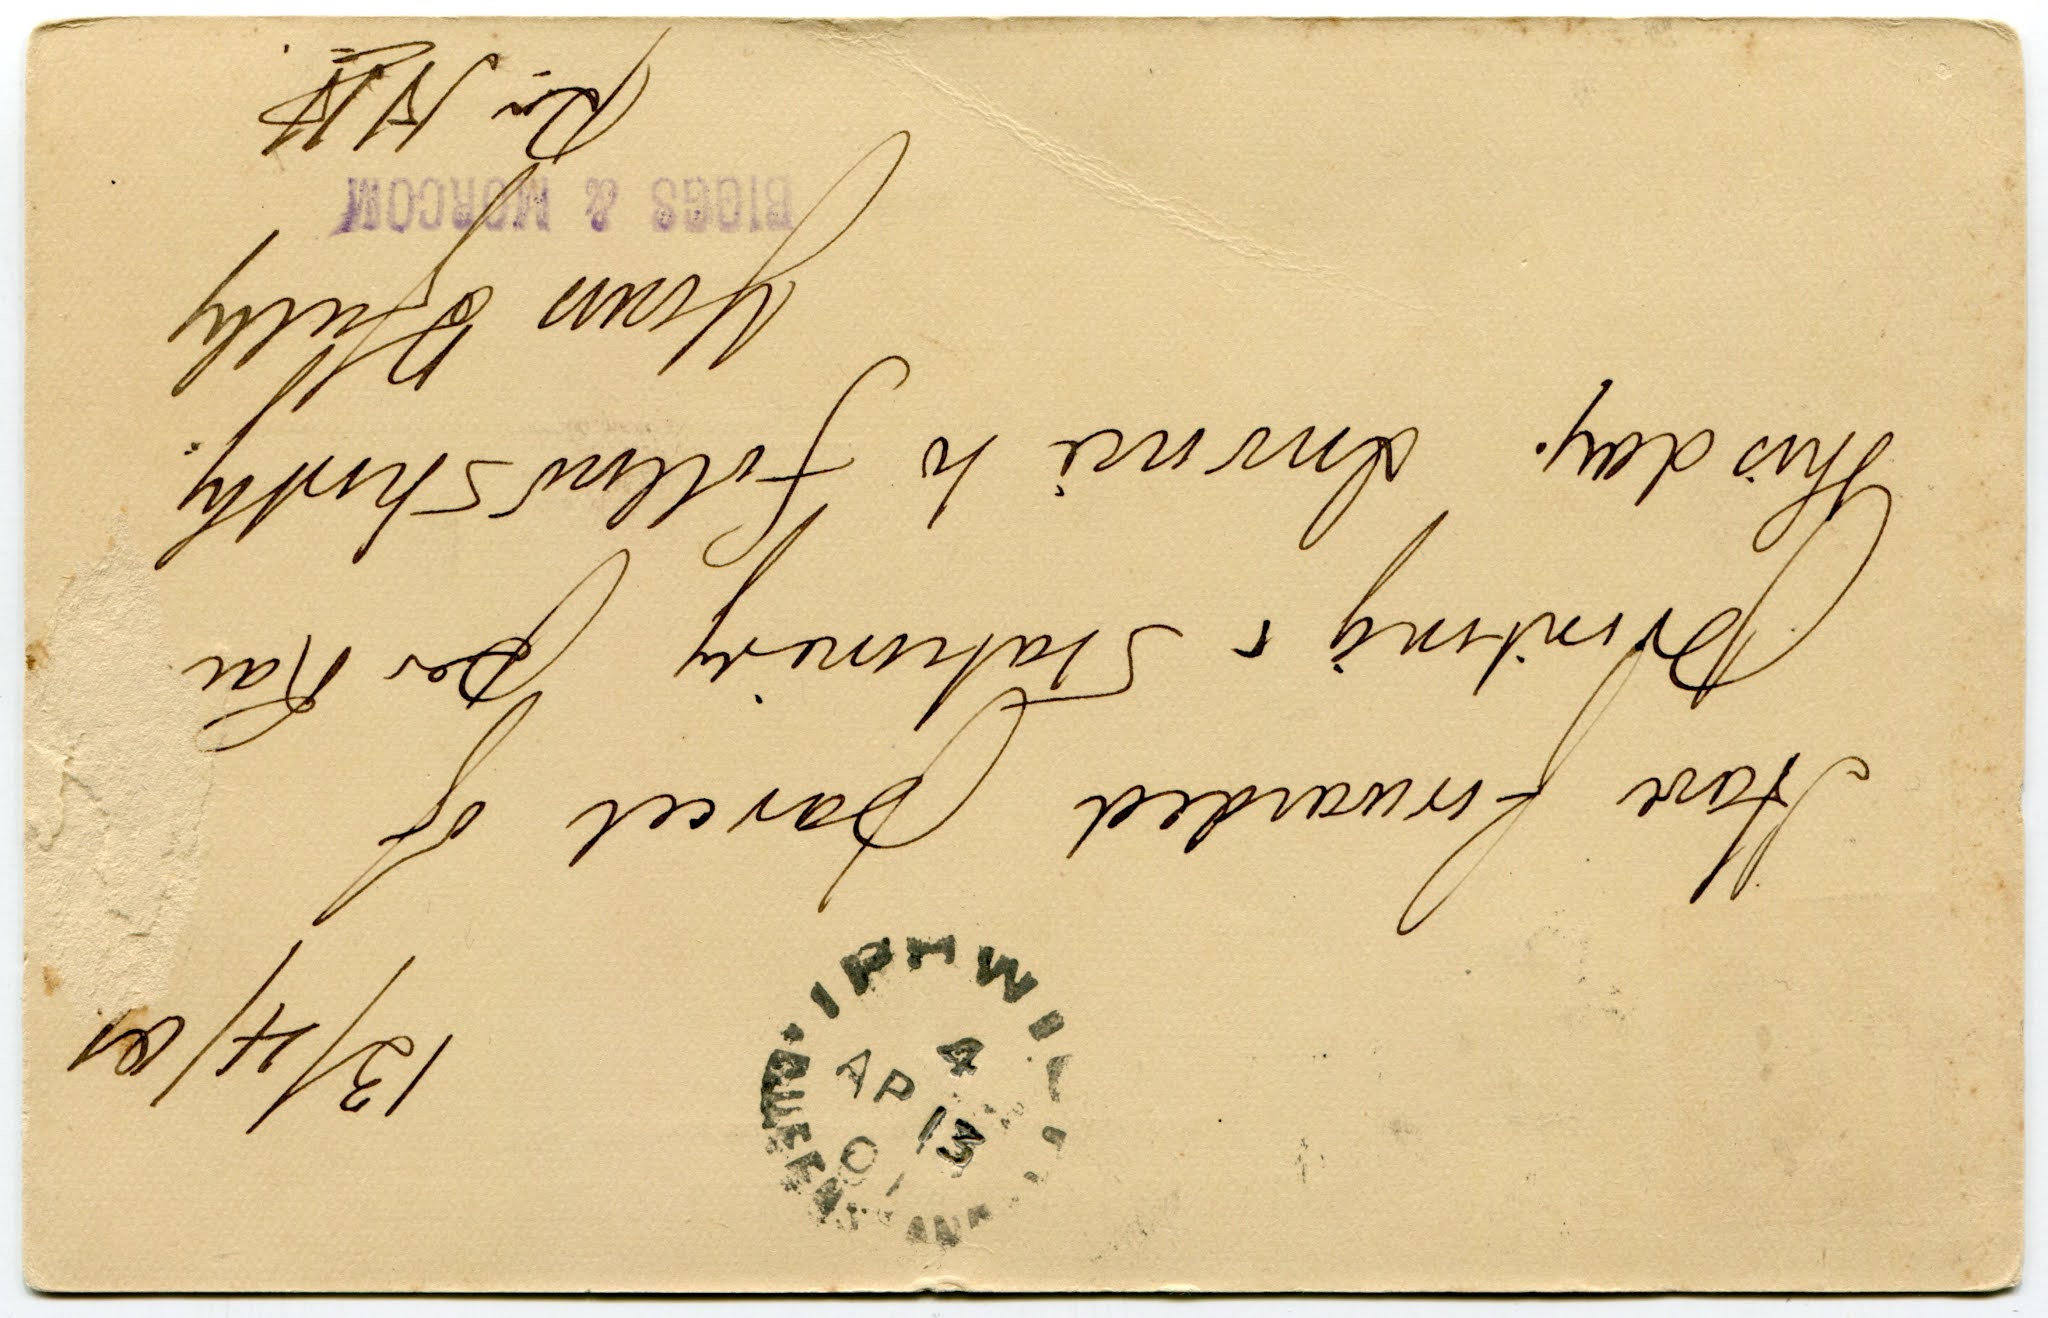 13/4/01
IPHWI
4
AP 13
01
QUEENSLAND
Have forwarded Parcel of
Printing & Stationery per Rail
this day. Invoice to follow shortly.
Yours
BIGGS & MORCOM
Per